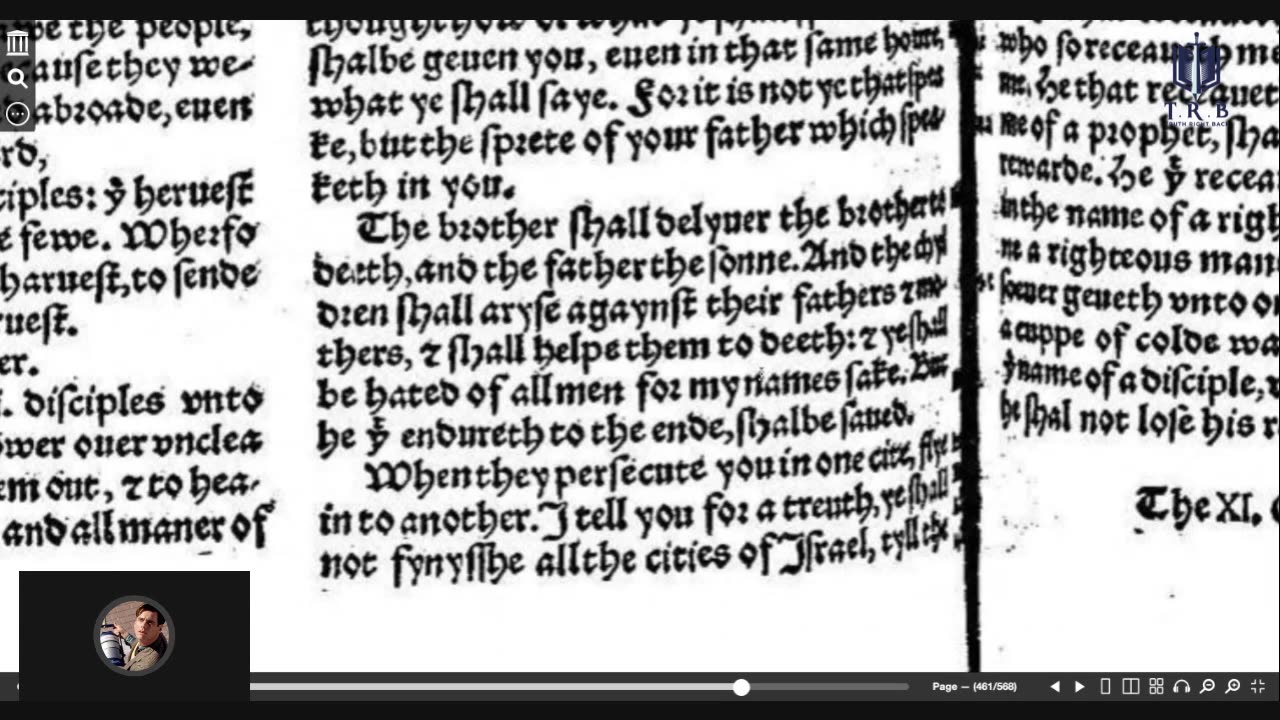 we the people,
ause they we-
abroade, euen
rd,
ciples: ẏ heruest
e fewe. Wherfo
haruest, to sende
ruest.
er.
. disciples vnto
ower ouer vnclea
em out, ⁊ to hea-
and all maner of
shalbe geuen you, euen in that same houre,
what ye shall saye. For it is not ye that spea
ke, but the sprete of your father which spea-
keth in you.
The brother shall delyuer the brother to
deeth, and the father the sonne. And the chyl
dren shall aryse agaynst their fathers ⁊ mo-
thers, ⁊ shall helpe them to deeth: ⁊ ye shall
be hated of all men for my names sake. But
he yͭ endureth to the ende, shalbe saued.
When they persecute you in one cite, flye
in to another. I tell you for a treuth, ye shall
not fynysshe all the cities of Israel, tyll the
who so receaueth me
me. He that receauet
me of a prophet, sha
rewarde. He yͭ recea
in the name of a righ
me a righteous man
soeuer geueth vnto o
a cuppe of colde wa
yͤ name of a disciple,
he shal not lose his r
The XI.
T.R.B
TRUTH RIGHT BACK
Page — (461/568)